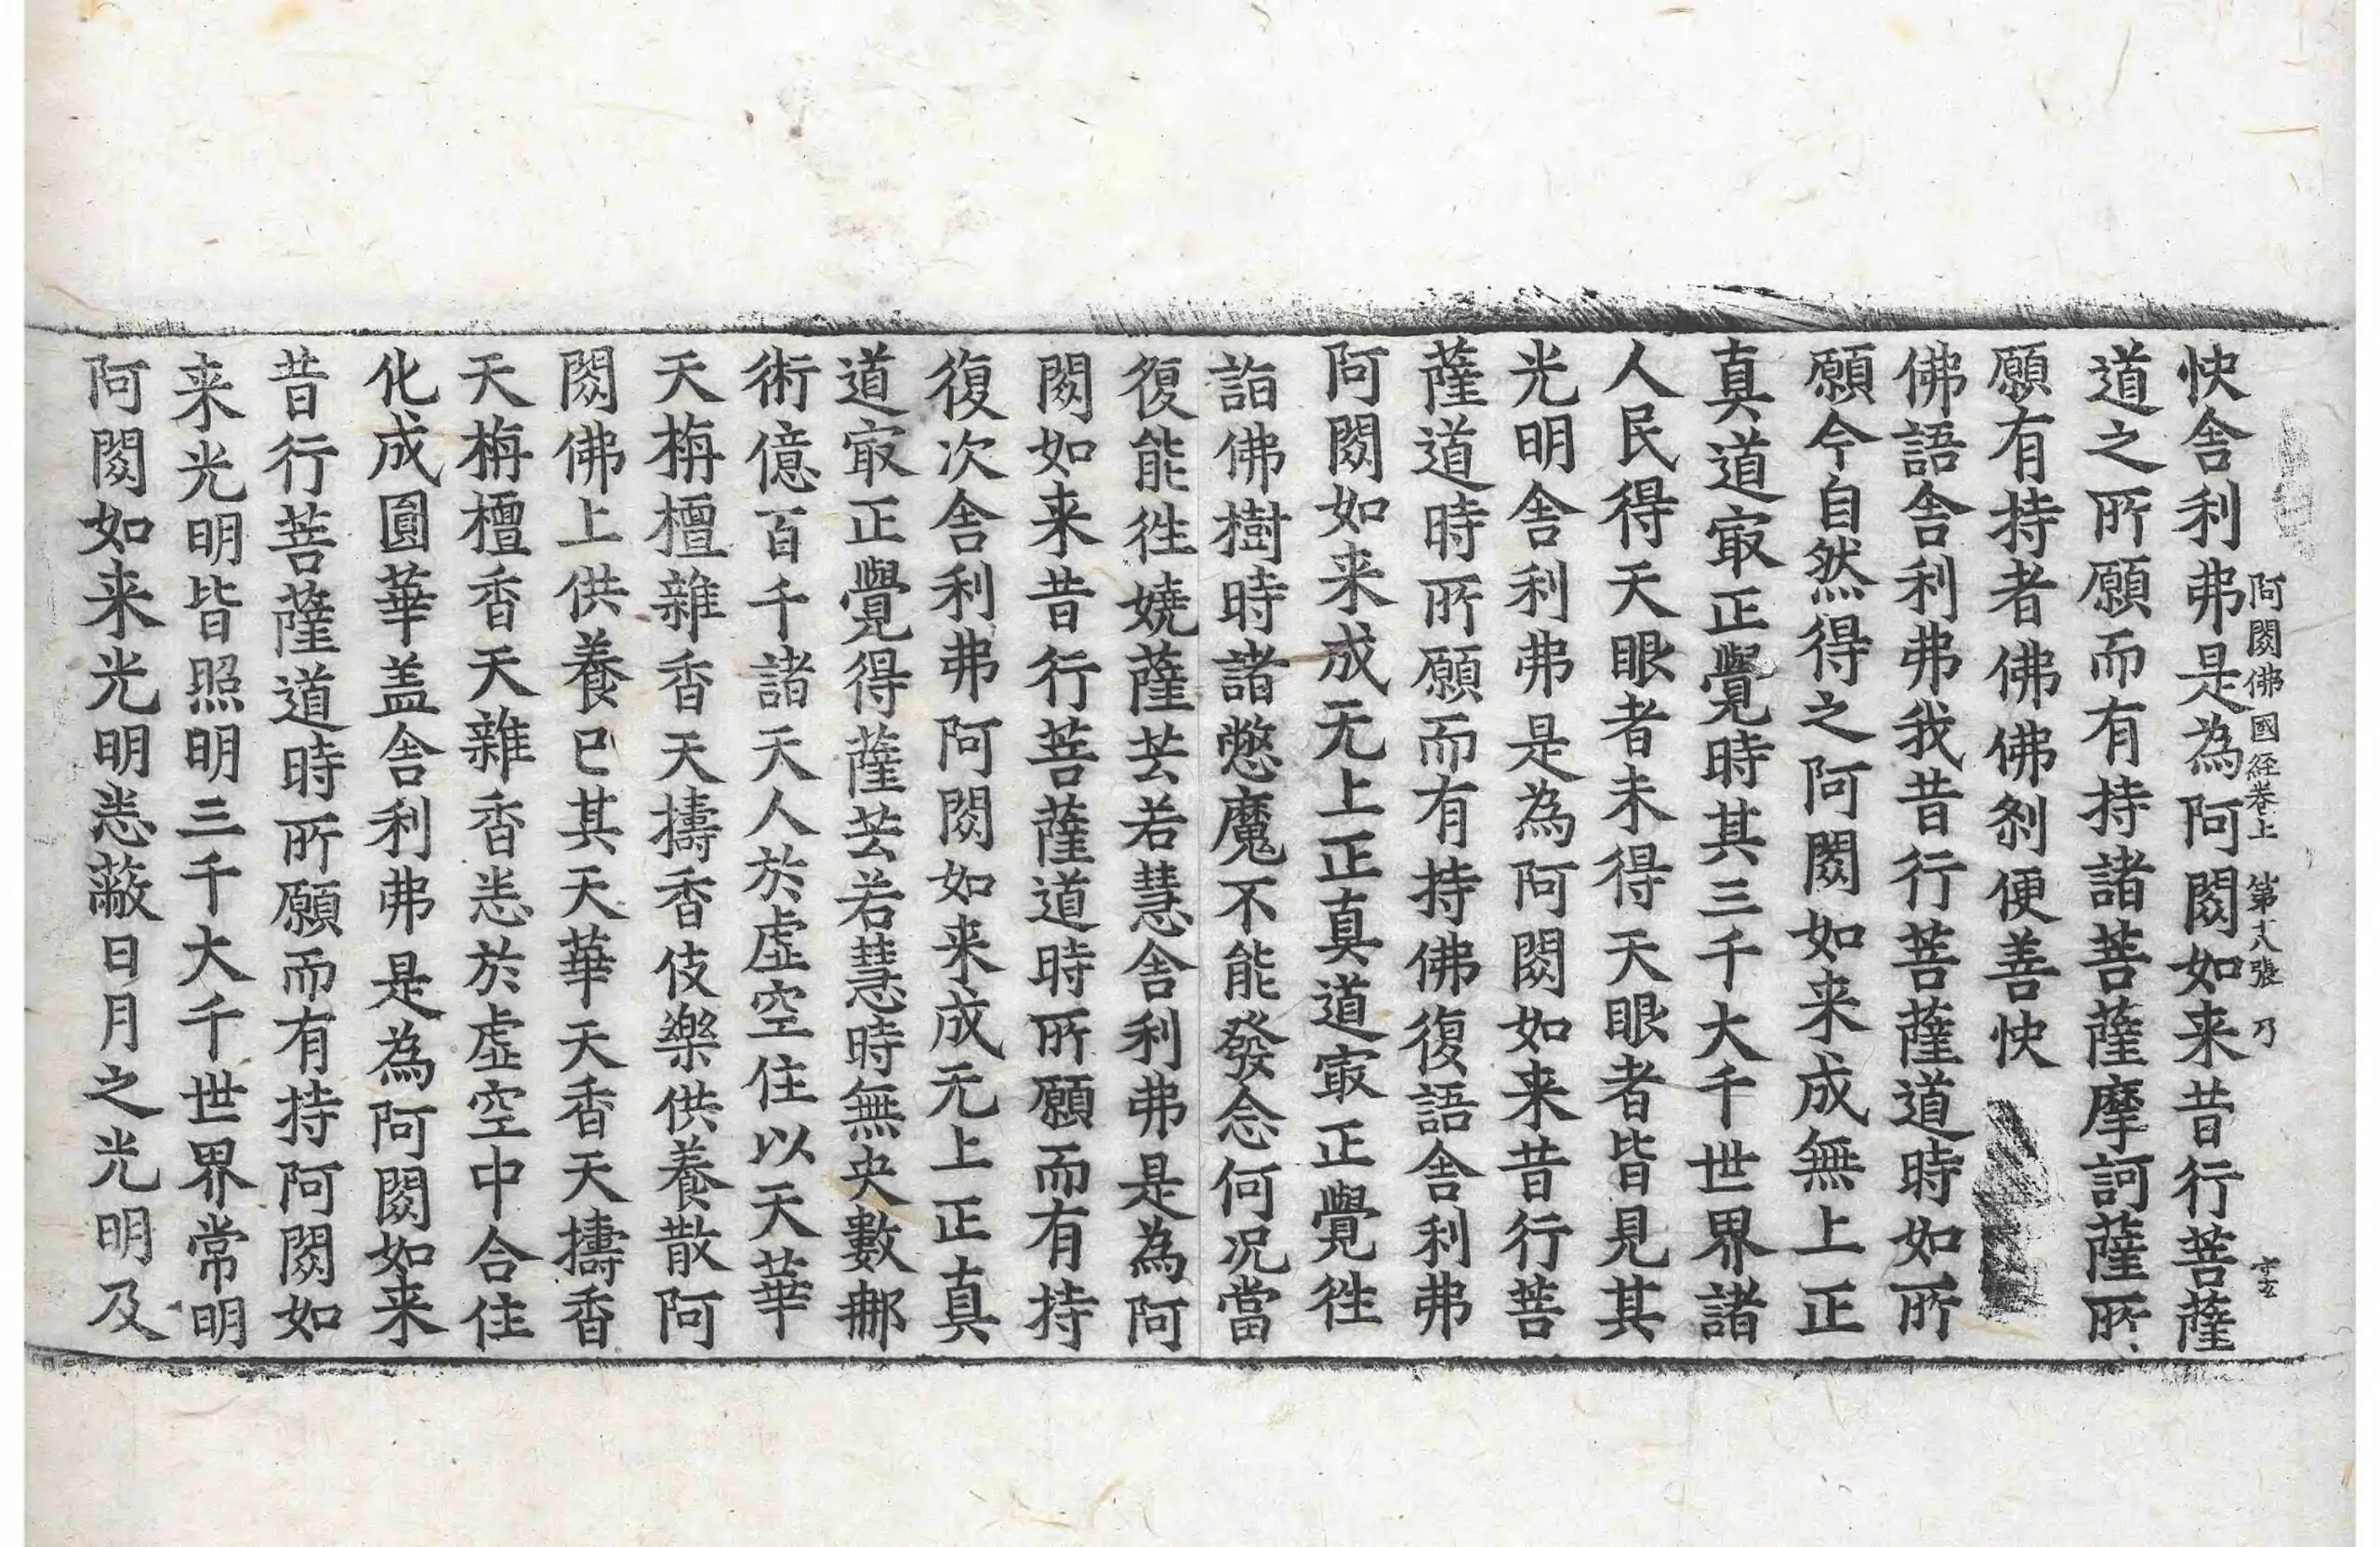 阿閦佛國経卷上 第十八張 乃
快舎利弗是為阿閦如来昔行菩薩
道之所願而有持諸菩薩摩訶薩所
願有持者佛佛刹便善快
佛語舎利弗我昔行菩薩道時如所
願今自然得之阿閦如来成無上正
真道㝡正覺時其三千大千世界諸
人民得天眼者未得天眼者皆見其
光明舎利弗是為阿閦如来昔行菩
薩道時所願而有持佛復語舎利弗
阿閦如来成无上正真道㝡正覺徃
詣佛樹時諸憋魔不能發念何况當
復能徃嬈薩芸若慧舎利弗是為阿
閦如来昔行菩薩道時所願而有持
復次舎利弗阿閦如来成无上正真
道㝡正覺得薩芸若慧時無央數𨚗
術億百千諸天人於虚空住以天華
天栴檀雜香天擣香伎樂供養散阿
閦佛上供養已其天華天香天擣香
天栴檀香天雜香悉於虚空中合住
化成圓華盖舎利弗是為阿閦如来
昔行菩薩道時所願而有持阿閦如
来光明皆照明三千大千世界常明
阿閦如来光明悉蔽日月之光明及